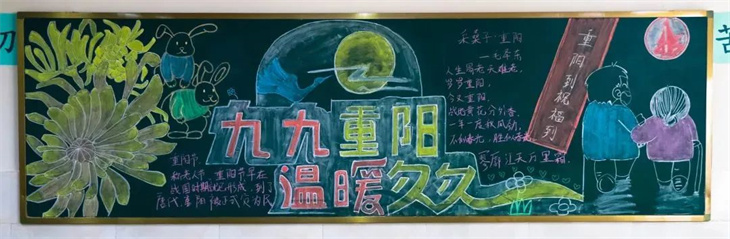 九九重阳
温暖久久
重阳节
称老人节。重阳节早在
战国时期就已形成，到了
唐代重阳被正式定为民
采桑子·重阳
—毛泽东
人生易老天难老，
岁岁重阳，
今又重阳，
战地黄花分外香。
一年一度秋风劲，
不似春光，胜似春光，
寥廓江天万里霜。
重阳到祝福到
苦